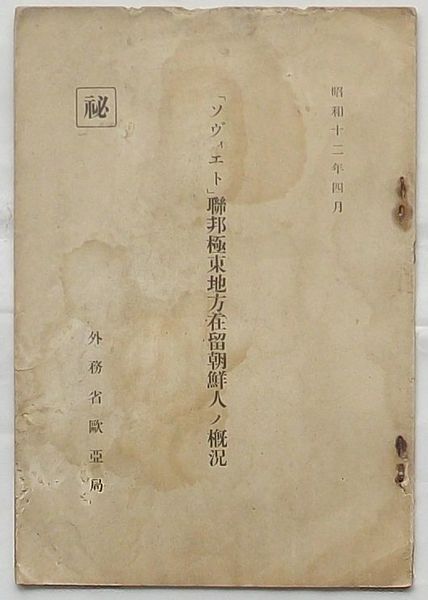 昭和十二年四月
「ソヴィエト」聯邦極東地方在留朝鮮人ノ概況
秘
外務省歐亞局